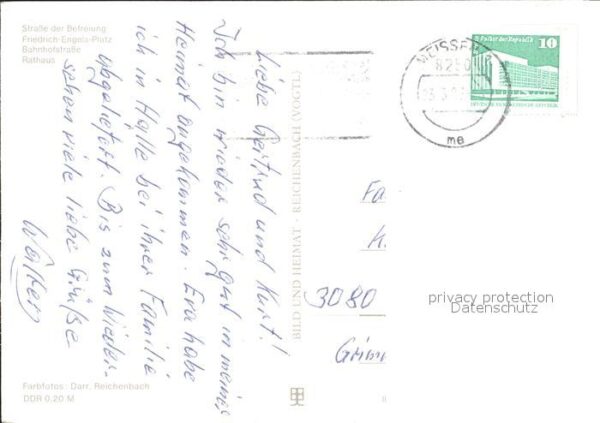 Straße der Befreiung
Friedrich-Engels-Platz
Bahnhofstraße
Rathaus
Liebe Gertrud und Kurt!
Ich bin wieder sehr gut in meiner
Heimat angekommen. Eva habe
ich in Halle bei ihrer Familie
abgeliefert. Bis zum Wieder-
sehen viele liebe Grüße
Walter
Farbfotos: Darr, Reichenbach
DDR 0,20 M
BILD UND HEIMAT · REICHENBACH (VOGTL)
MEISSEN
8250
me
Palast der Republik
10
Fa
K
3080
Grim
privacy protection
Datenschutz